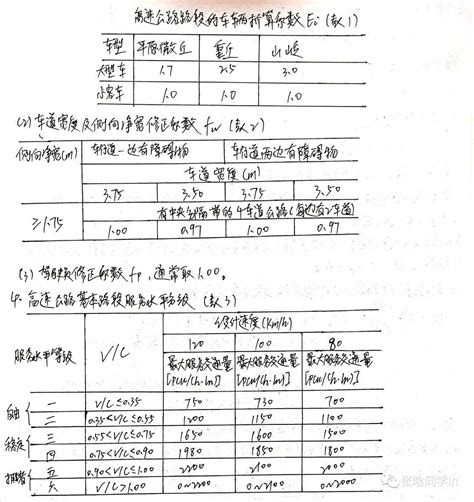 高速公路路段的车辆折算系数 Ei (表1)
车型 平原微丘 重丘 山岭
大型车 1.7 2.5 3.0
小客车 1.0 1.0 1.0
(2) 车道宽度及侧向净宽修正系数 fw (表2)
侧向净宽(m) 车行道一边有障碍物 车行道两边有障碍物
车道宽度(m)
3.75 3.50 3.75 3.50
有中央分隔带的4车道公路(每边有2车道)
≥1.75 1.00 0.97 1.00 0.97
(3) 驾驶员修正系数 fp, 通常取1.00。
4. 高速公路基本路段服务水平分级 (表3)
服务水平等级 V/C 设计速度(km/h)
120 100 80
最大服务交通量 [pcu/(h·ln)] 最大服务交通量 [pcu/(h·ln)] 最大服务交通量 [pcu/(h·ln)]
自由 一 V/C≤0.35 750 730 700
二 0.35<V/C≤0.55 1200 1150 1100
稳定 三 0.55<V/C≤0.75 1650 1600 1500
四 0.75<V/C≤0.90 1980 1850 1800
拥堵 五 0.90<V/C≤1.00 2200 2100 2000
六 V/C>1.00 0~2200 0~2100 0~2000
张晗同学in